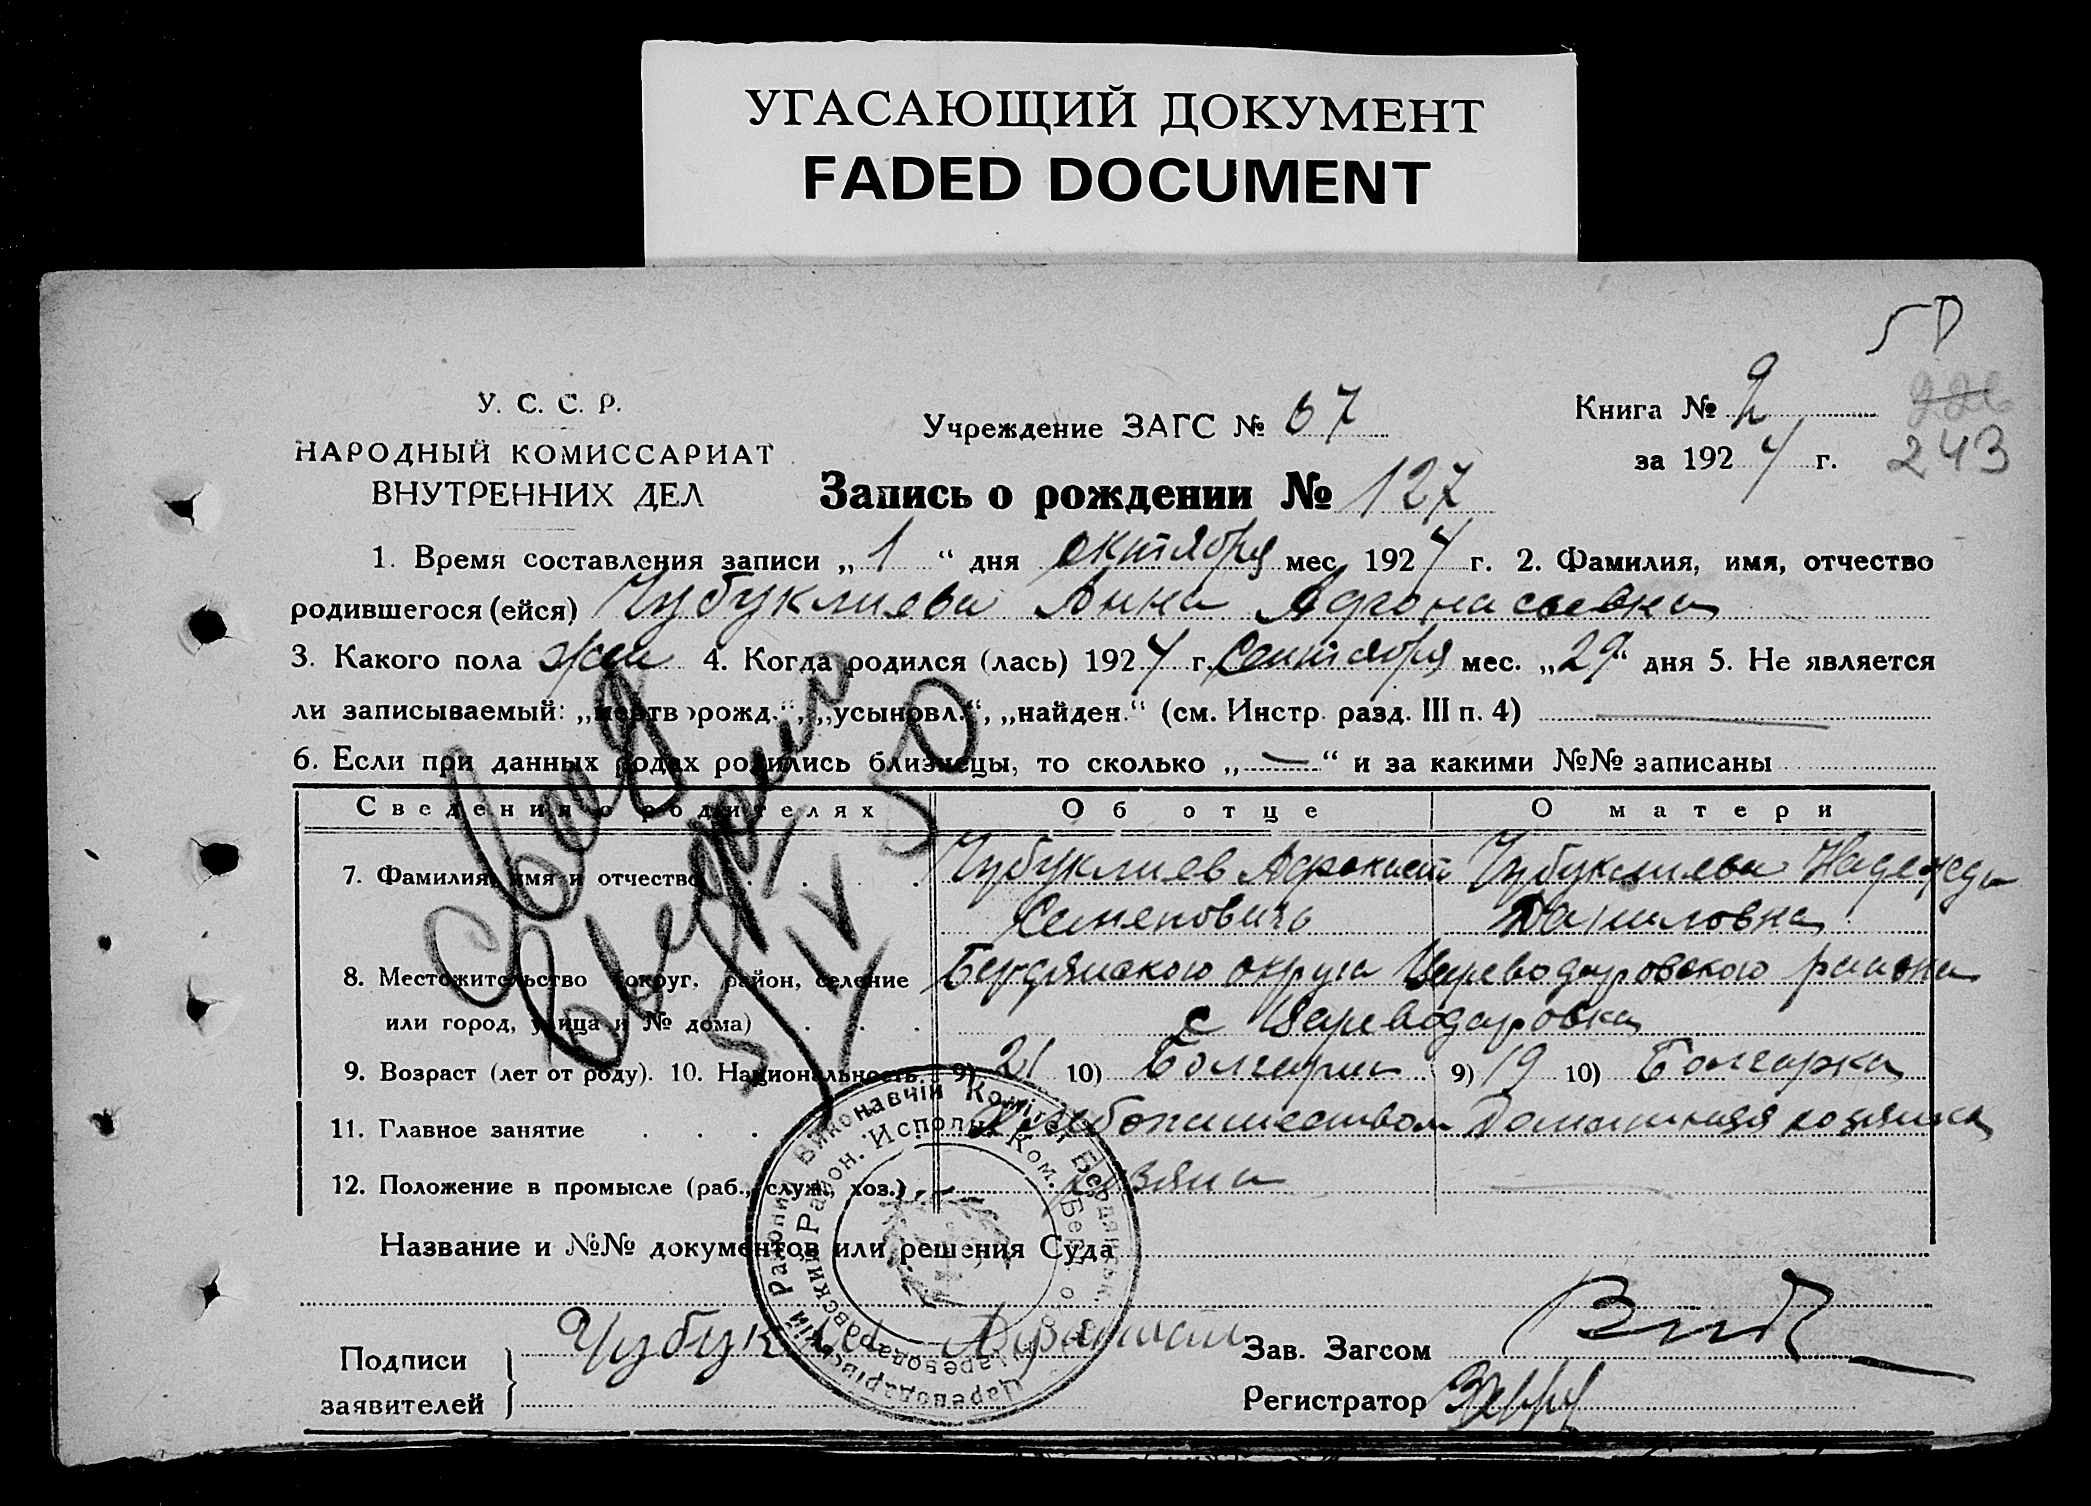 УГАСАЮЩИЙ ДОКУМЕНТ
FADED DOCUMENT
У. С. С. Р.
НАРОДНЫЙ КОМИССАРИАТ
ВНУТРЕННИХ ДЕЛ
Учреждение ЗАГС № 67
Книга № 2
226
за 1924 г.
243
Запись о рождении № 127
1. Время составления записи „1“ дня октября мес. 1924 г. 2. Фамилия, имя, отчество
родившегося (ейся) Чубуклиева Анна Афонасьевна
3. Какого пола жен 4. Когда родился (лась) 1924 г. Сентября мес. „29“ дня 5. Не является
ли записываемый: „мертворожд.“, „усыновл.“, „найден.“ (см. Инстр. разд. III п. 4)
6. Если при данных родах родились близнецы, то сколько „—“ и за какими №№ записаны
Сведения о родителях Об отце О матери
7. Фамилия, имя и отчество Чубуклиев Афонасий Чубуклиева Надежда
Семенович Даниловна
8. Местожительство (округ, район, селение Бердянского округа Цареводаровского района
или город, улица и № дома) с Цареводаровка
9. Возраст (лет от роду). 10. Национальность 9) 21 10) Болгарин 9) 19 10) Болгарка
11. Главное занятие Хлебопашеством Домашняя хозяйка
12. Положение в промысле (раб., служ., хоз.) хозяин
Название и №№ документов или решения Суда
Подписи
заявителей
Чубуклиев
Зав. Загсом
Регистратор
Свед
выдан
5/IV 50
Цареводарівський Районний Виконавчій Комітет Бердянськ.
Цареводаровский Район. Исполн. Ком. Берд. окр.